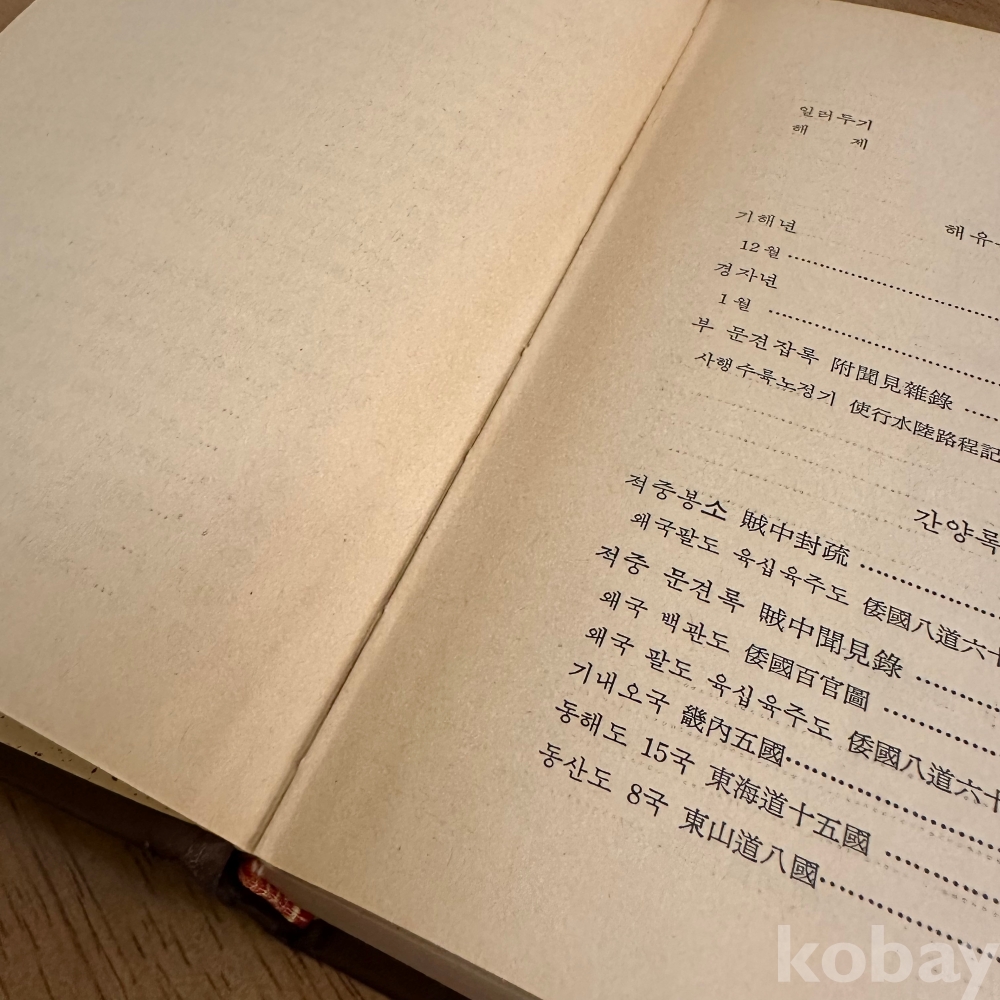 일러두기
해 제
해유
기해년
12월
경자년
1월
부 문견잡록 附聞見雜錄
사행수륙노정기 使行水陸路程記
간양록
적중봉소 賊中封疏
왜국팔도 육십육주도 倭國八道六十
적중 문견록 賊中聞見錄
왜국 백관도 倭國百官圖
왜국 팔도 육십육주도 倭國八道六十
기내오국 畿內五國
동해도 15국 東海道十五國
동산도 8국 東山道八國
kobay